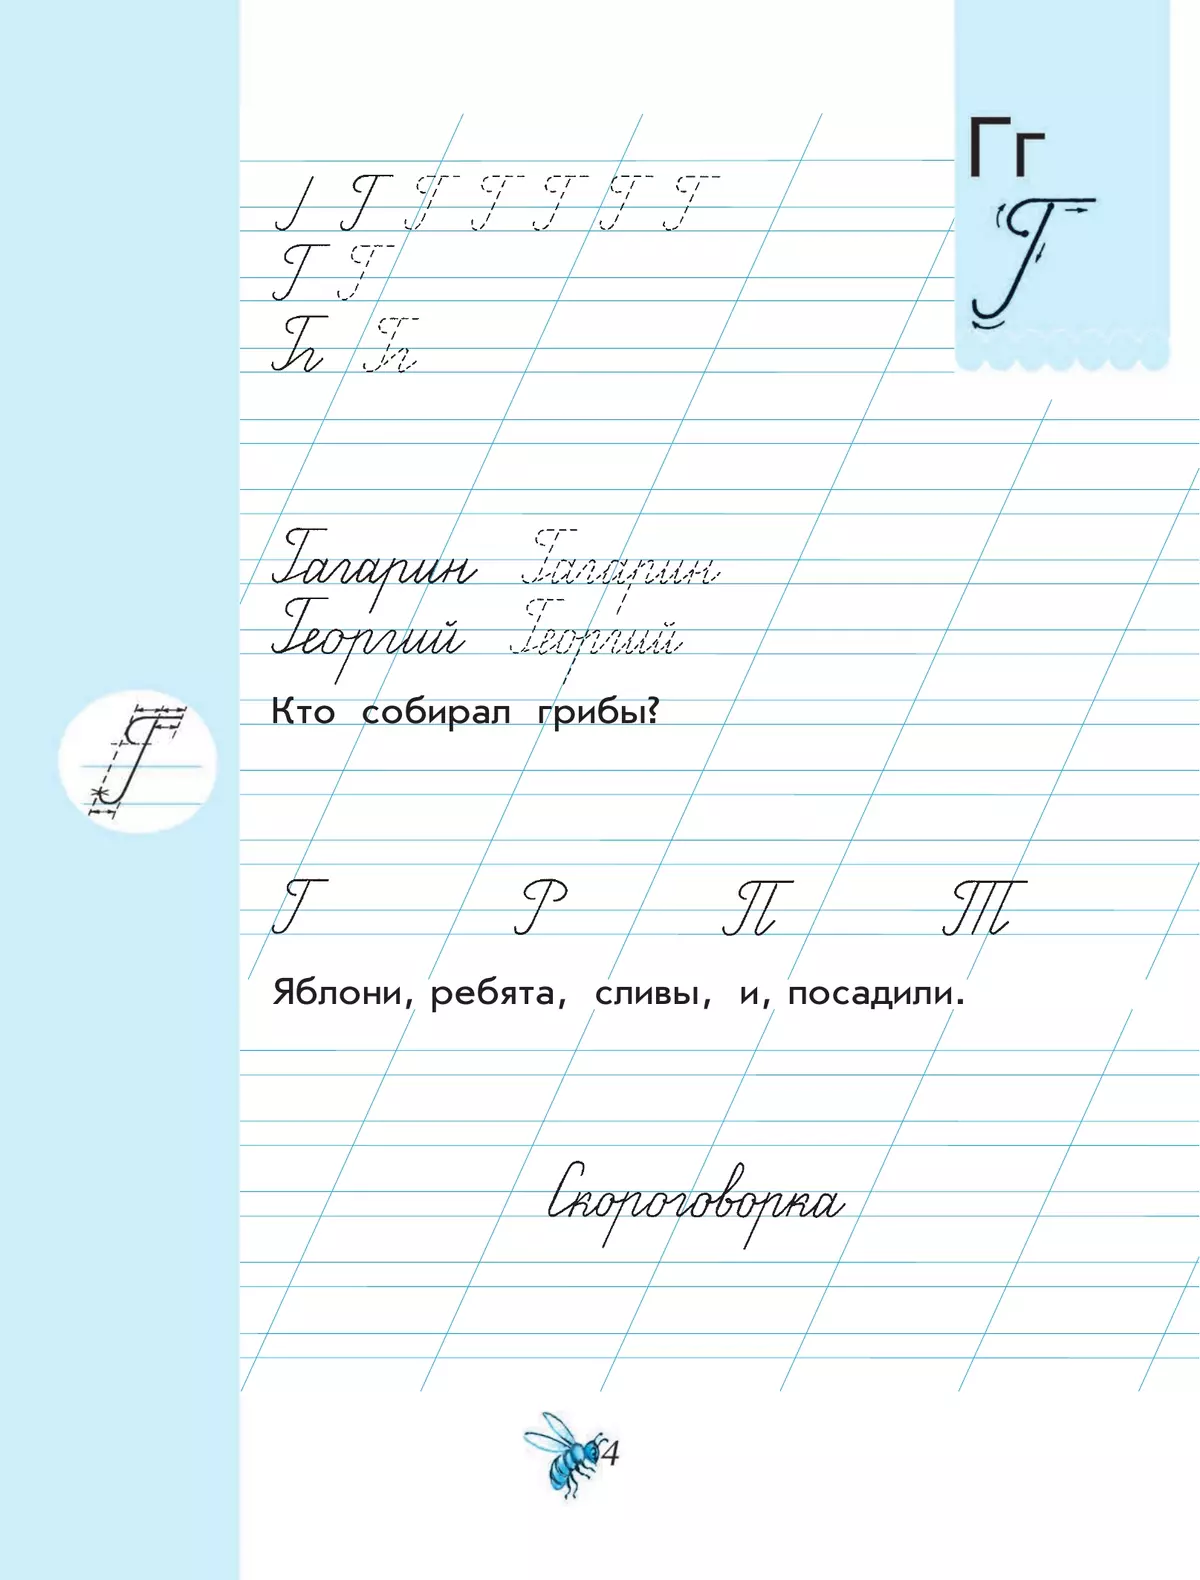 Гг
Г
Г Г Г Г Г Г
Г Г
Гп Гп
Гагарин Гагарин
Георгий Георгий
Кто собирал грибы?
Г
Г Р П Т
Яблони, ребята, сливы, и, посадили.
Скороговорка
4